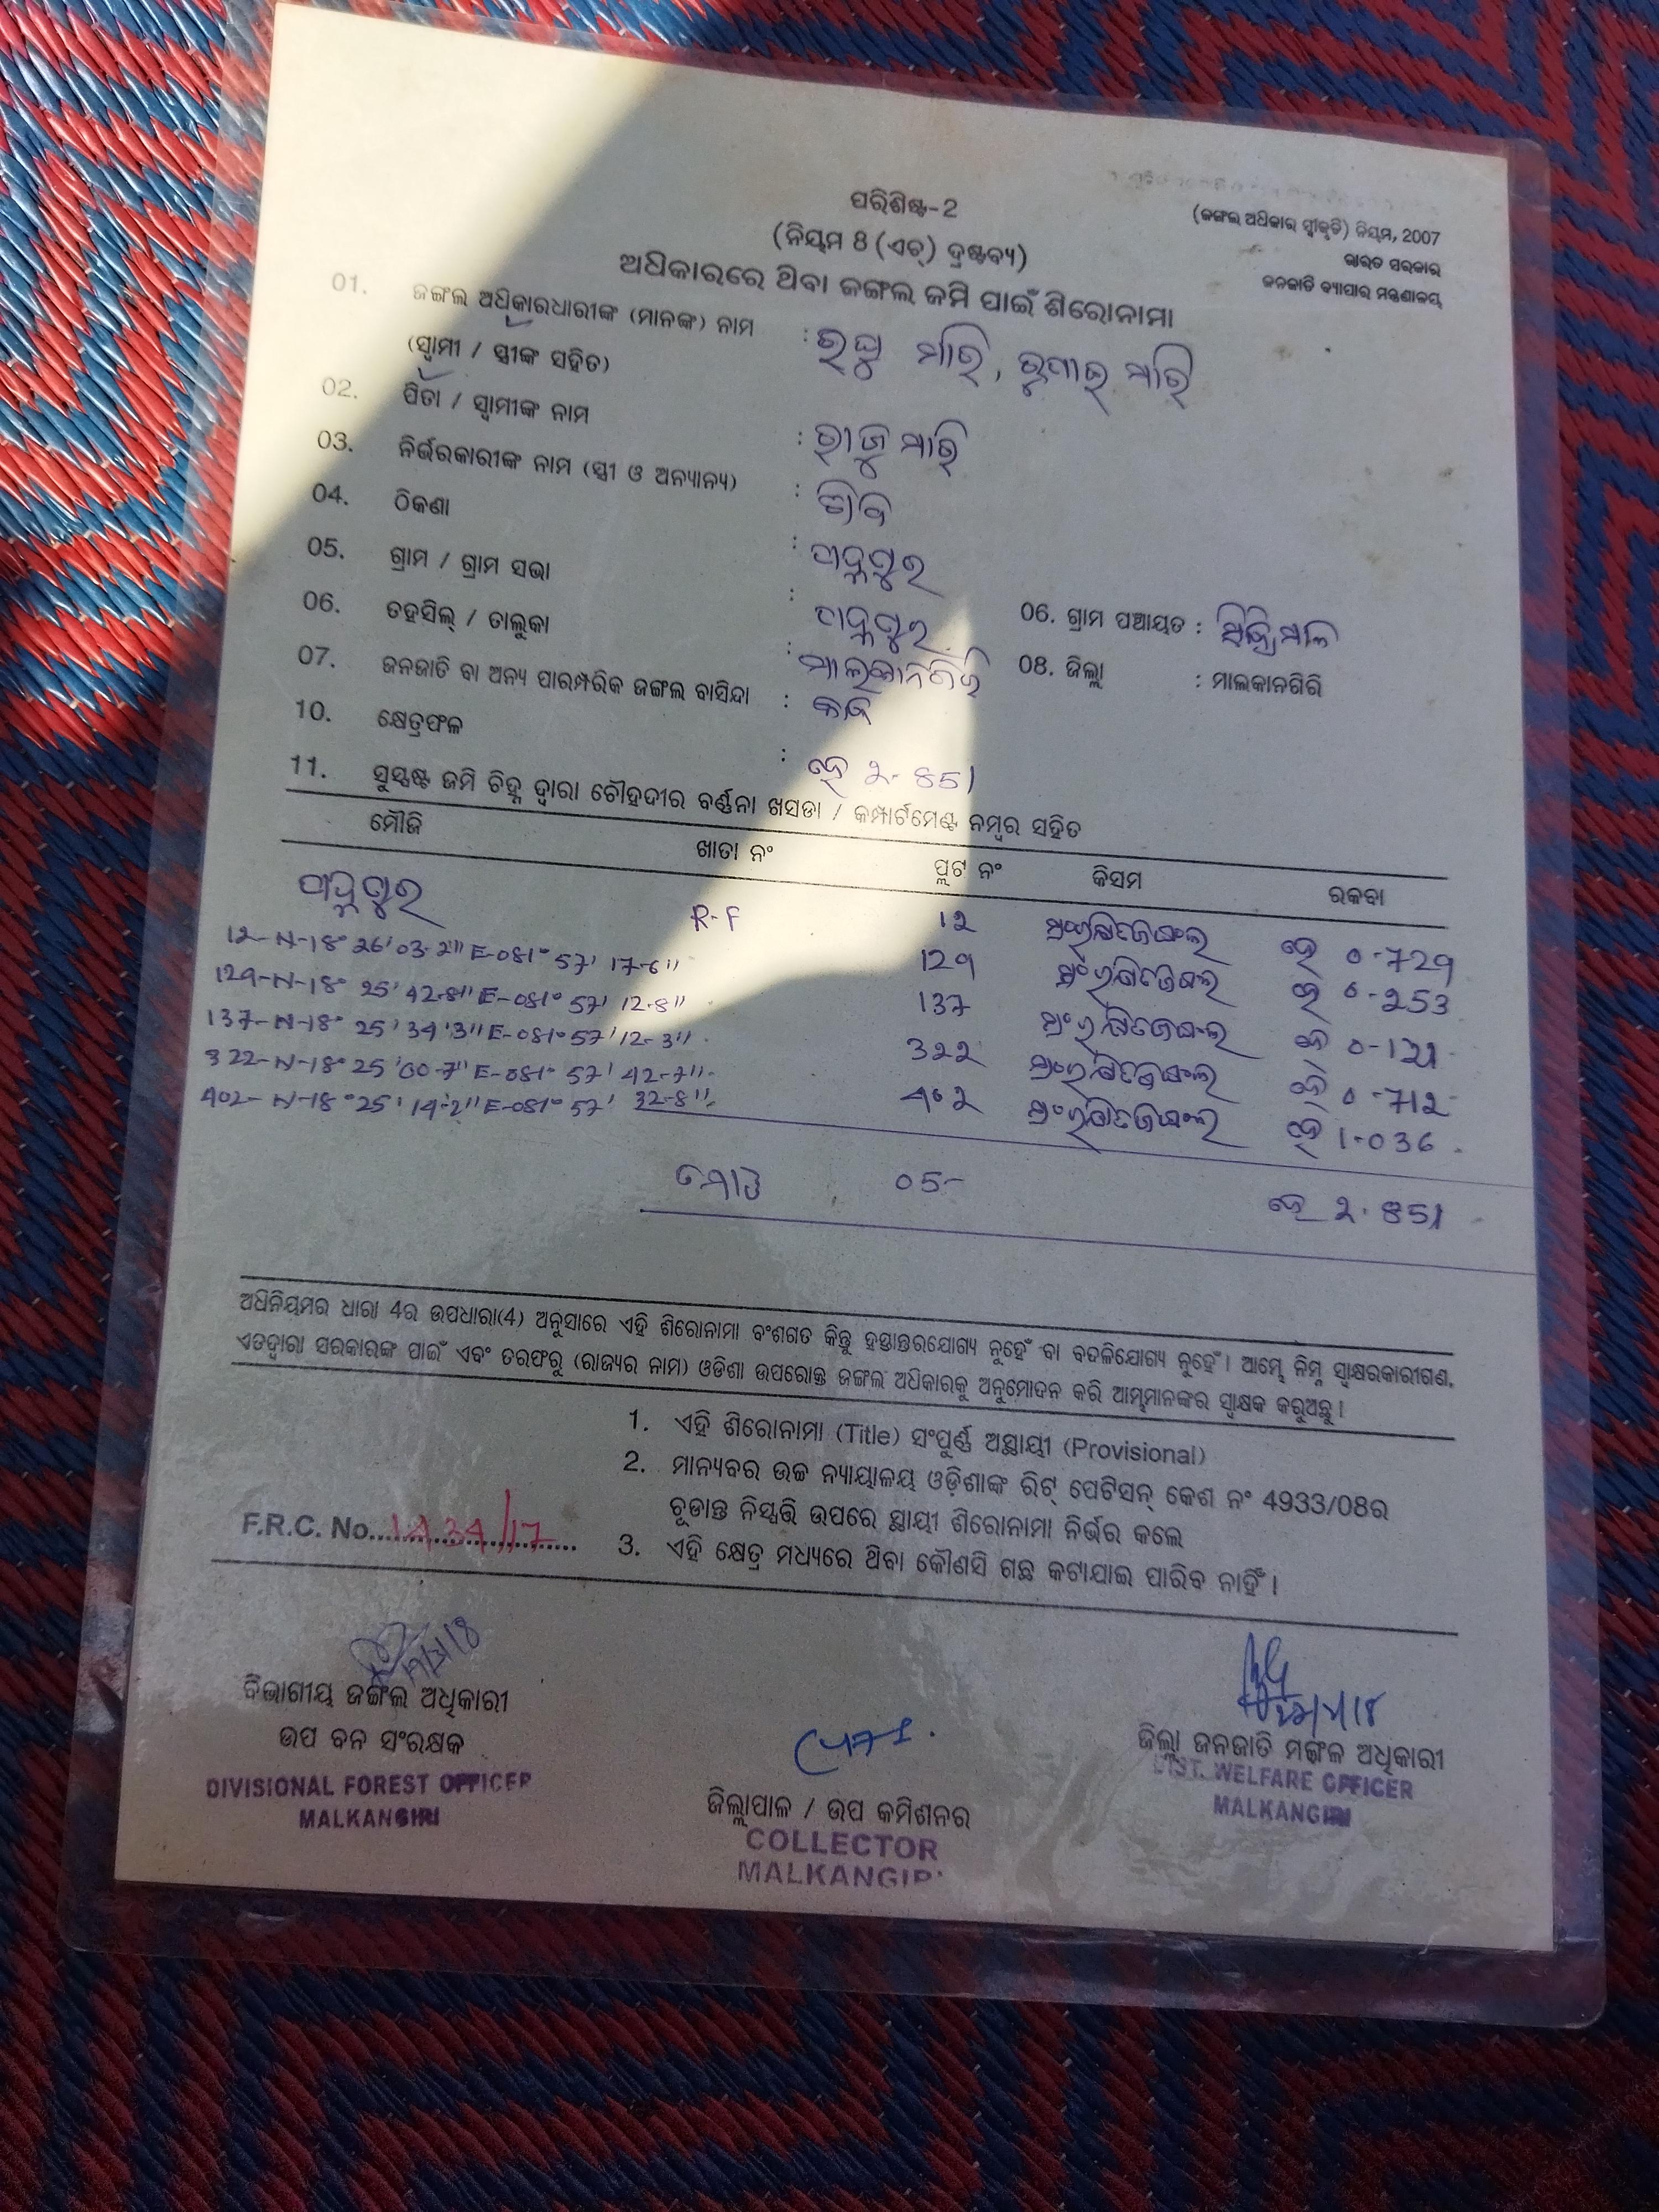 ପରିଶିଷ୍ଟ-2
(ଜଙ୍ଗଲ ଅଧିକାର ସ୍ୱୀକୃତି) ନିୟମ, 2007
(ନିୟମ 8 (ଏଚ୍) ଦ୍ରଷ୍ଟବ୍ୟ)
ଭାରତ ସରକାର
ଅଧିକାରରେ ଥିବା ଜଙ୍ଗଲ ଜମି ପାଇଁ ଶିରୋନାମା
ଜନଜାତି ବ୍ୟାପାର ମନ୍ତ୍ରଣାଳୟ
01. ଜଙ୍ଗଲ ଅଧିକାରଧାରୀଙ୍କ (ମାନଙ୍କ) ନାମ : ରଘୁ ମାରି,
(ସ୍ୱାମୀ / ସ୍ତ୍ରୀଙ୍କ ସହିତ)
02. ପିତା / ସ୍ୱାମୀଙ୍କ ନାମ : ରାଜୁ ମାରି
03. ନିର୍ଭରକାରୀଙ୍କ ନାମ (ସ୍ତ୍ରୀ ଓ ଅନ୍ୟାନ୍ୟ) :
04. ଠିକଣା :
05. ଗ୍ରାମ / ଗ୍ରାମ ସଭା :
06. ଗ୍ରାମ ପଞ୍ଚାୟତ :
06. ତହସିଲ୍ / ତାଲୁକା : ମାଲକାନଗିରି
08. ଜିଲ୍ଲା : ମାଲକାନଗିରି
07. ଜନଜାତି ବା ଅନ୍ୟ ପାରମ୍ପରିକ ଜଙ୍ଗଲ ବାସିନ୍ଦା :
10. କ୍ଷେତ୍ରଫଳ : ହେ 2.851
11. ସୁସ୍ପଷ୍ଟ ଜମି ଚିହ୍ନ ଦ୍ୱାରା ଚୌହଦୀର ବର୍ଣ୍ଣନା ଖସଡା / କମ୍ପାର୍ଟମେଣ୍ଟ ନମ୍ବର ସହିତ
ମୌଜି ଖାତା ନଂ ପ୍ଲଟ ନଂ କିସମ ରକବା
R-F 12 ହେ 0-729
12-N-18° 26' 03-2" E-081° 57' 17-6"
129 ହେ 0-253
129-N-18° 25' 42-8" E-081° 57' 12-8"
137 ହେ 0-121
137-N-18° 25' 34'3" E-081° 57' 12-3"
322 ହେ 0-712
322-N-18° 25' 00-7" E-081° 57' 42-7"
402 ହେ 1-036
402-N-18° 25' 14-2" E-081° 57' 32-8"
ମୋଟ 05- ହେ 2.851
ଅଧିନିୟମର ଧାରା 4ର ଉପଧାରା(4) ଅନୁସାରେ ଏହି ଶିରୋନାମା ବଂଶଗତ କିନ୍ତୁ ହସ୍ତାନ୍ତରଯୋଗ୍ୟ ନୁହେଁ ବା ବଦଳିଯୋଗ୍ୟ ନୁହେଁ। ଆମ୍ଭେ ନିମ୍ନ ସ୍ୱାକ୍ଷରକାରୀଗଣ,
ଏତଦ୍ୱାରା ସରକାରଙ୍କ ପାଇଁ ଏବଂ ତରଫରୁ (ରାଜ୍ୟର ନାମ) ଓଡିଶା ଉପରୋକ୍ତ ଜଙ୍ଗଲ ଅଧିକାରକୁ ଅନୁମୋଦନ କରି ଆମ୍ଭମାନଙ୍କର ସ୍ୱାକ୍ଷକ କରୁଅଛୁ।
1. ଏହି ଶିରୋନାମା (Title) ସଂପୂର୍ଣ୍ଣ ଅସ୍ଥାୟୀ (Provisional)
2. ମାନ୍ୟବର ଉଚ୍ଚ ନ୍ୟାୟାଳୟ ଓଡ଼ିଶାଙ୍କ ରିଟ୍ ପେଟିସନ୍ କେଶ ନଂ 4933/08ର
ଚୂଡାନ୍ତ ନିସ୍ପତ୍ତି ଉପରେ ସ୍ଥାୟୀ ଶିରୋନାମା ନିର୍ଭର କଲେ
F.R.C. No. 1434/17
3. ଏହି କ୍ଷେତ୍ର ମଧ୍ୟରେ ଥିବା କୌଣସି ଗଛ କଟାଯାଇ ପାରିବ ନାହିଁ।
ବିଭାଗୀୟ ଜଙ୍ଗଲ ଅଧିକାରୀ
ଉପ ବନ ସଂରକ୍ଷକ
DIVISIONAL FOREST OFFICER
MALKANGIRI
ଜିଲ୍ଲାପାଳ / ଉପ କମିଶନର
COLLECTOR
MALKANGIRI
ଜିଲ୍ଲା ଜନଜାତି ମଙ୍ଗଳ ଅଧିକାରୀ
DIST. WELFARE OFFICER
MALKANGIRI